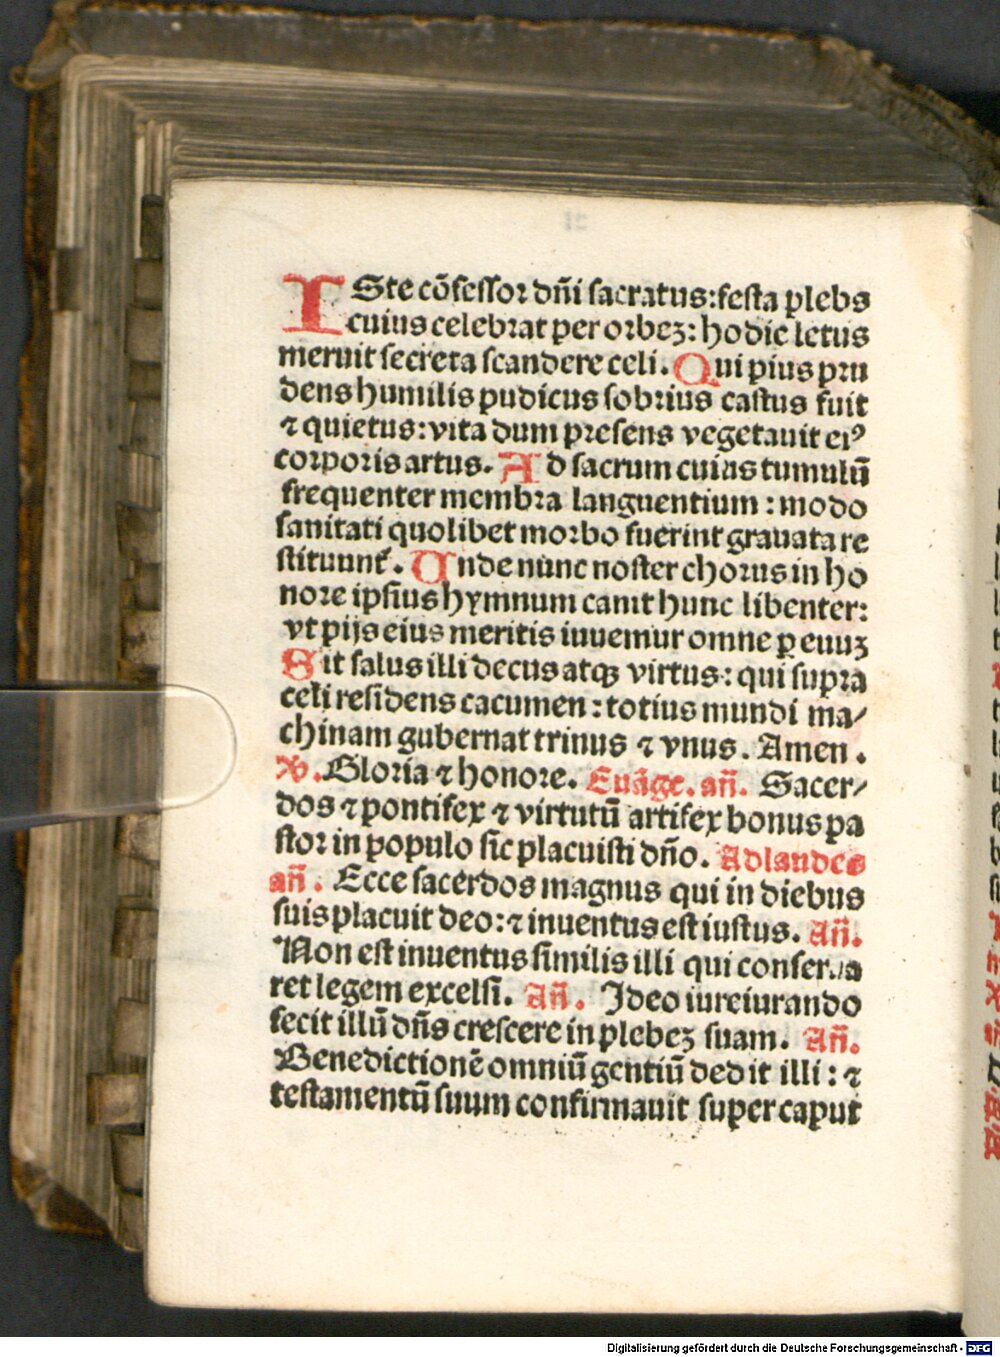 ISte cõfessor dñi sacratus: festa plebs
cuius celebrat per orbeʒ: hodie letus
meruit secreta scandere celi. Qui pius pru
dens humilis pudicus sobrius castus fuit
⁊ quietus: vita dum presens vegetauit eiꝰ
corporis artus. Ad sacrum cuius tumulũ
frequenter membra languentium: modo
sanitati quolibet morbo fuerint grauata re
stituunt᷑. Unde nunc noster chorus in ho
nore ipsius hymnum canit hunc libenter:
vt pijs eius meritis iuuemur omne ꝑ euuʒ
Sit salus illi decus atqʒ virtus: qui supra
celi residens cacumen: totius mundi ma/
chinam gubernat trinus ⁊ vnus. Amen.
℣. Gloria ⁊ honore. Euãge. añ. Sacer/
dos ⁊ pontifex ⁊ virtutũ artifex bonus pa
stor in populo sic placuisti dño. Ad laudes
añ. Ecce sacerdos magnus qui in diebus
suis placuit deo: ⁊ inuentus est iustus. Añ.
Non est inuentus similis illi qui conserua
ret legem excelsi. Añ. Ideo iureiurando
fecit illũ dñs crescere in plebeʒ suam. Añ.
Benedictionẽ omniũ gentiũ dedit illi: ⁊
testamentũ suum confirmauit super caput
Digitalisierung gefördert durch die Deutsche Forschungsgemeinschaft - DFG